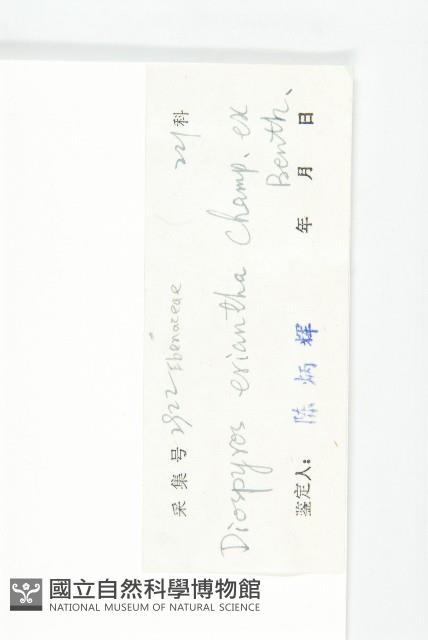 采集号 2922 Ebenaceae 221科
Diospyros eriantha Champ. ex
Benth.
鉴定人: 陈炳辉 年 月 日
國立自然科學博物館
NATIONAL MUSEUM OF NATURAL SCIENCE